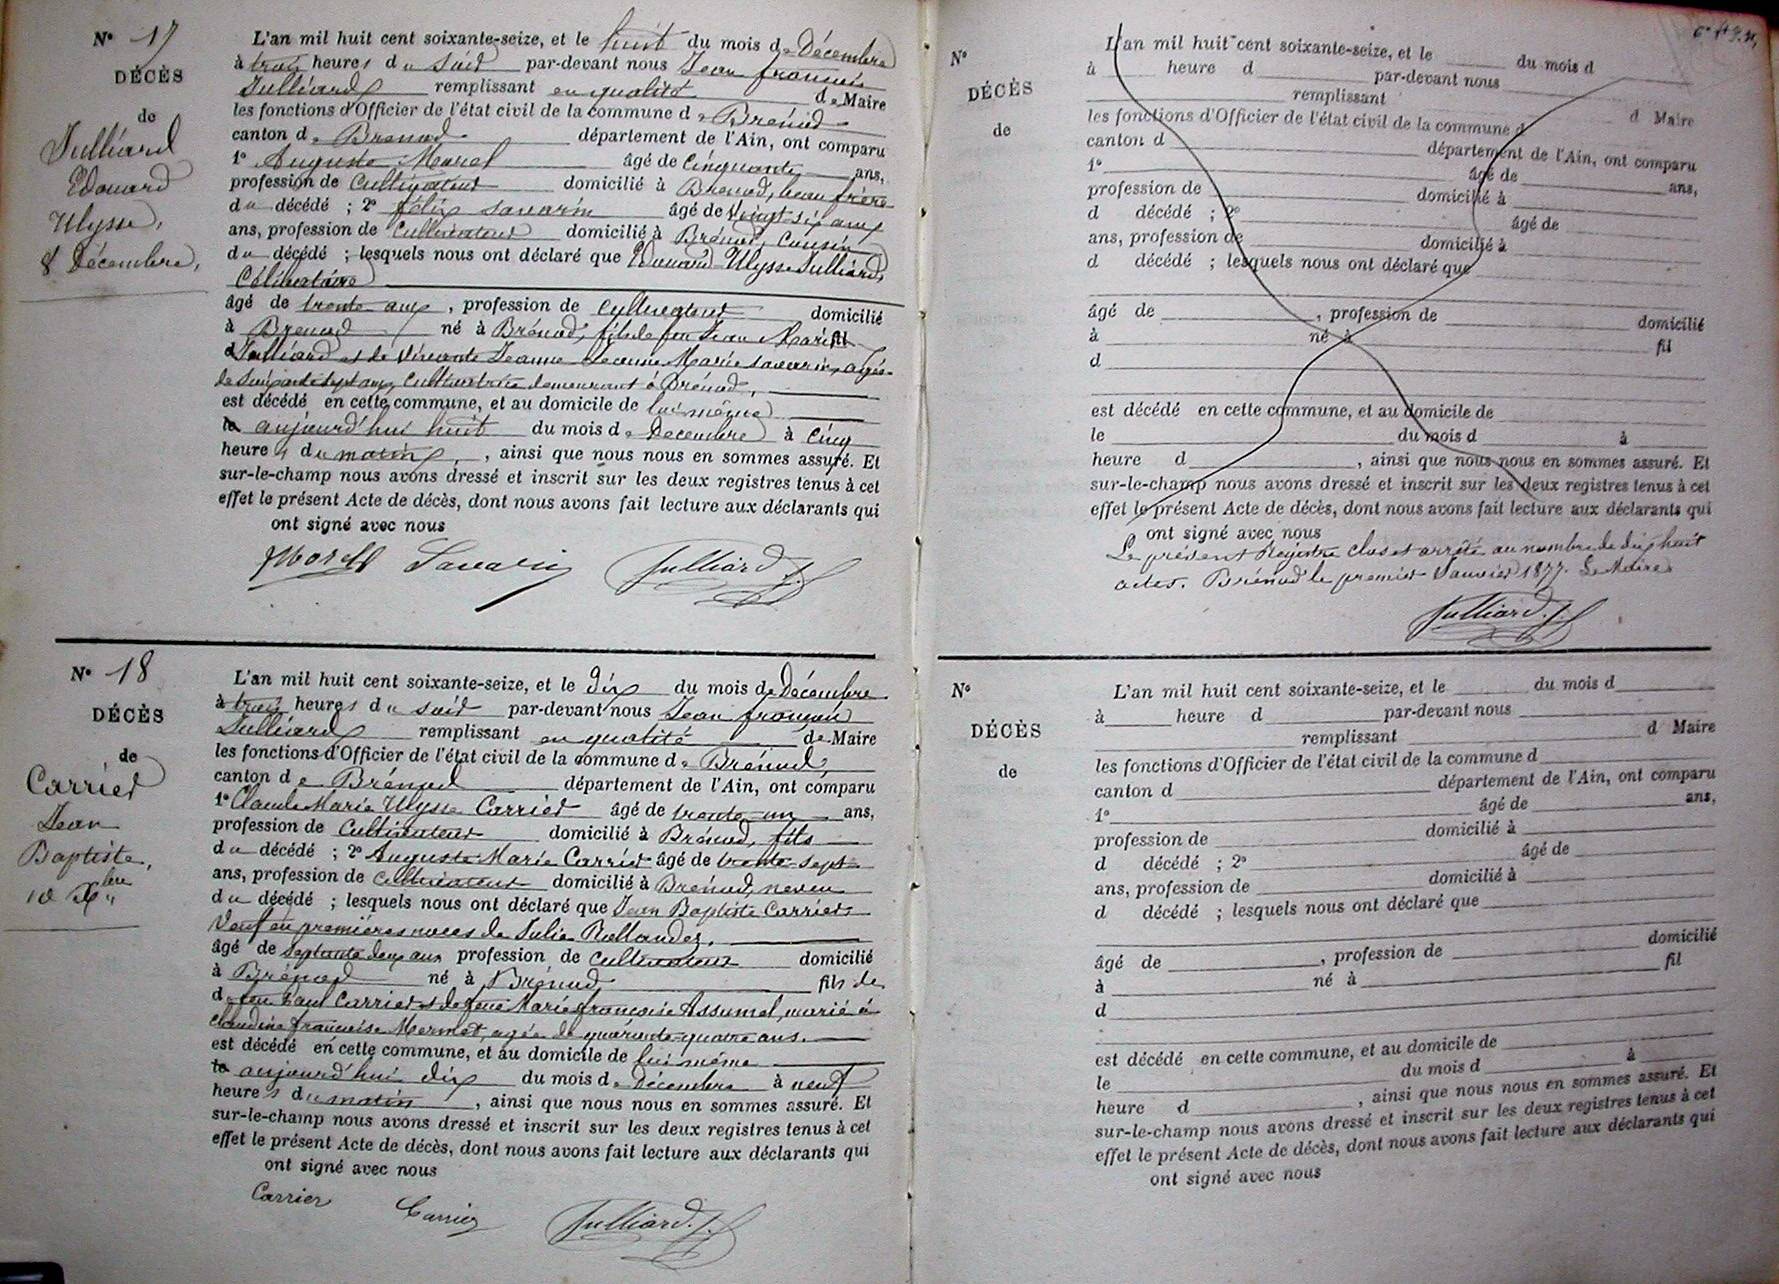 N° 17
DÉCÈS
de
Julliard
Edouard
Ulysse,
8 Décembre,
L'an mil huit cent soixante-seize, et le huit du mois de Décembre
à trois heures du soir par-devant nous Jean françois
Julliard remplissant en qualité de Maire
les fonctions d'Officier de l'état civil de la commune de Brénod
canton de Brenod département de l'Ain, ont comparu
1° Auguste Morel âgé de cinquante ans,
profession de cultivateur domicilié à Brenod, beau frère
du décédé ; 2° félix savarin âgé de vingt six ans
ans, profession de cultivateur domicilié à Brénod, cousin
du décédé ; lesquels nous ont déclaré que Edouard Ulysse Julliard,
Célibataire
âgé de trente ans, profession de cultivateur domicilié
à Brenod né à Brénod, fils de feu Jean Marie fil
d Julliard et de vivante Jeanne Marie savarin, agée
de sept ans, cultivatrice demeurant à Brénod,
est décédé en cette commune, et au domicile de lui même
le aujourd'hui huit du mois de Decembre à cinq
heures du matin, ainsi que nous nous en sommes assuré. Et
sur-le-champ nous avons dressé et inscrit sur les deux registres tenus à cet
effet le présent Acte de décès, dont nous avons fait lecture aux déclarants qui
ont signé avec nous
Morel Savarin Julliard J.
N° 18
DÉCÈS
de
Carrier
Jean
Baptiste,
10 Xbre
L'an mil huit cent soixante-seize, et le dix du mois de Décembre
à trois heures du soir par-devant nous Jean françois
Julliard remplissant en qualité de Maire
les fonctions d'Officier de l'état civil de la commune de Brénod,
canton de Brénod département de l'Ain, ont comparu
1° Claude Marie Ulysse Carrier âgé de trente un ans,
profession de cultivateur domicilié à Brénod, fils
du décédé ; 2° Auguste Marie Carrier âgé de trente-sept
ans, profession de cultivateur domicilié à Brénod, neveu
du décédé ; lesquels nous ont déclaré que Jean Baptiste Carrier,
Veuf en premières noces de Julie Rollandez,
âgé de septante deux ans profession de cultivateur domicilié
à Brénod né à Brénod fils de
d feu Paul Carrier et de feue Marie françoise Assumel, marié à
claudine françoise Mermet, agée de quarante-quatre ans.
est décédé en cette commune, et au domicile de lui même
le aujourd'hui dix du mois de Décembre à neuf
heures du matin, ainsi que nous nous en sommes assuré. Et
sur-le-champ nous avons dressé et inscrit sur les deux registres tenus à cet
effet le présent Acte de décès, dont nous avons fait lecture aux déclarants qui
ont signé avec nous
Carrier Carrier Julliard. J.
N°
DÉCÈS
de
L'an mil huit cent soixante-seize, et le du mois d
à heure d par-devant nous
remplissant d Maire
les fonctions d'Officier de l'état civil de la commune d
canton d département de l'Ain, ont comparu
1° âgé de ans,
profession de domicilié à
d décédé ; 2° âgé de
ans, profession de domicilié à
d décédé ; lesquels nous ont déclaré que
âgé de , profession de domicilié
à né à fil
d
est décédé en cette commune, et au domicile de
le du mois d à
heure d , ainsi que nous nous en sommes assuré. Et
sur-le-champ nous avons dressé et inscrit sur les deux registres tenus à cet
effet le présent Acte de décès, dont nous avons fait lecture aux déclarants qui
ont signé avec nous
Le présent Registre clos et arrêté au nombre de dix huit
actes. Brénod le premier Janvier 1877. Le Maire
Julliard. J.
N°
DÉCÈS
de
L'an mil huit cent soixante-seize, et le du mois d
à heure d par-devant nous
remplissant d Maire
les fonctions d'Officier de l'état civil de la commune d
canton d département de l'Ain, ont comparu
1° âgé de ans,
profession de domicilié à
d décédé ; 2° âgé de
ans, profession de domicilié à
d décédé ; lesquels nous ont déclaré que
âgé de , profession de domicilié
à né à fil
d
est décédé en cette commune, et au domicile de
le du mois d à
heure d , ainsi que nous nous en sommes assuré. Et
sur-le-champ nous avons dressé et inscrit sur les deux registres tenus à cet
effet le présent Acte de décès, dont nous avons fait lecture aux déclarants qui
ont signé avec nous